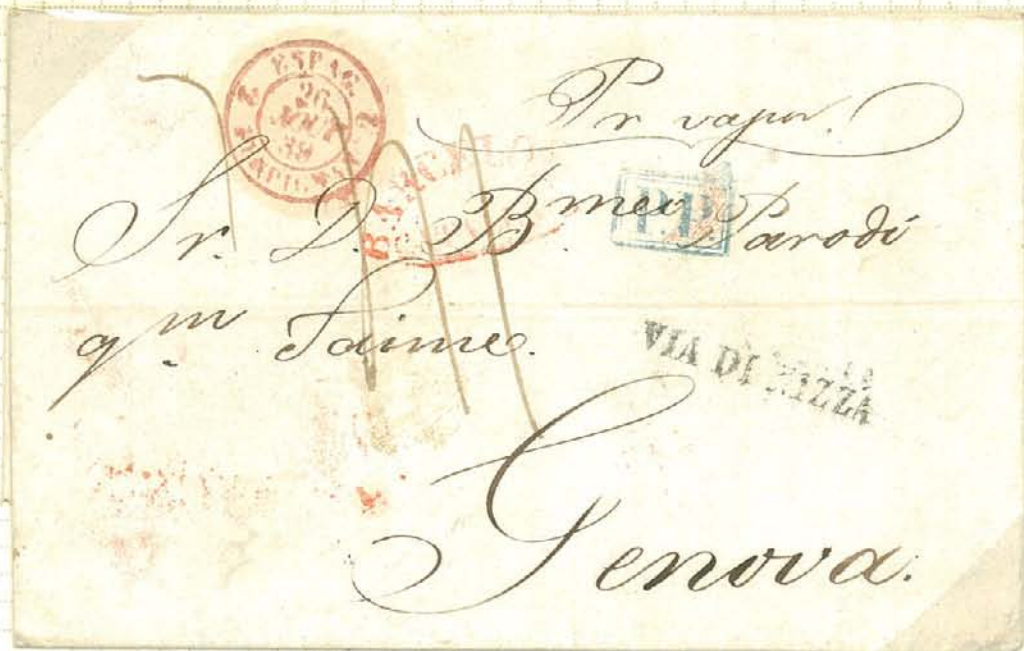 ESPAG. 2
26
Pr vapor.
BARCELO
P.P.
Sr. D. Bmeu Parodi
qm Jaime.
VIA DI NIZZA
Genova.